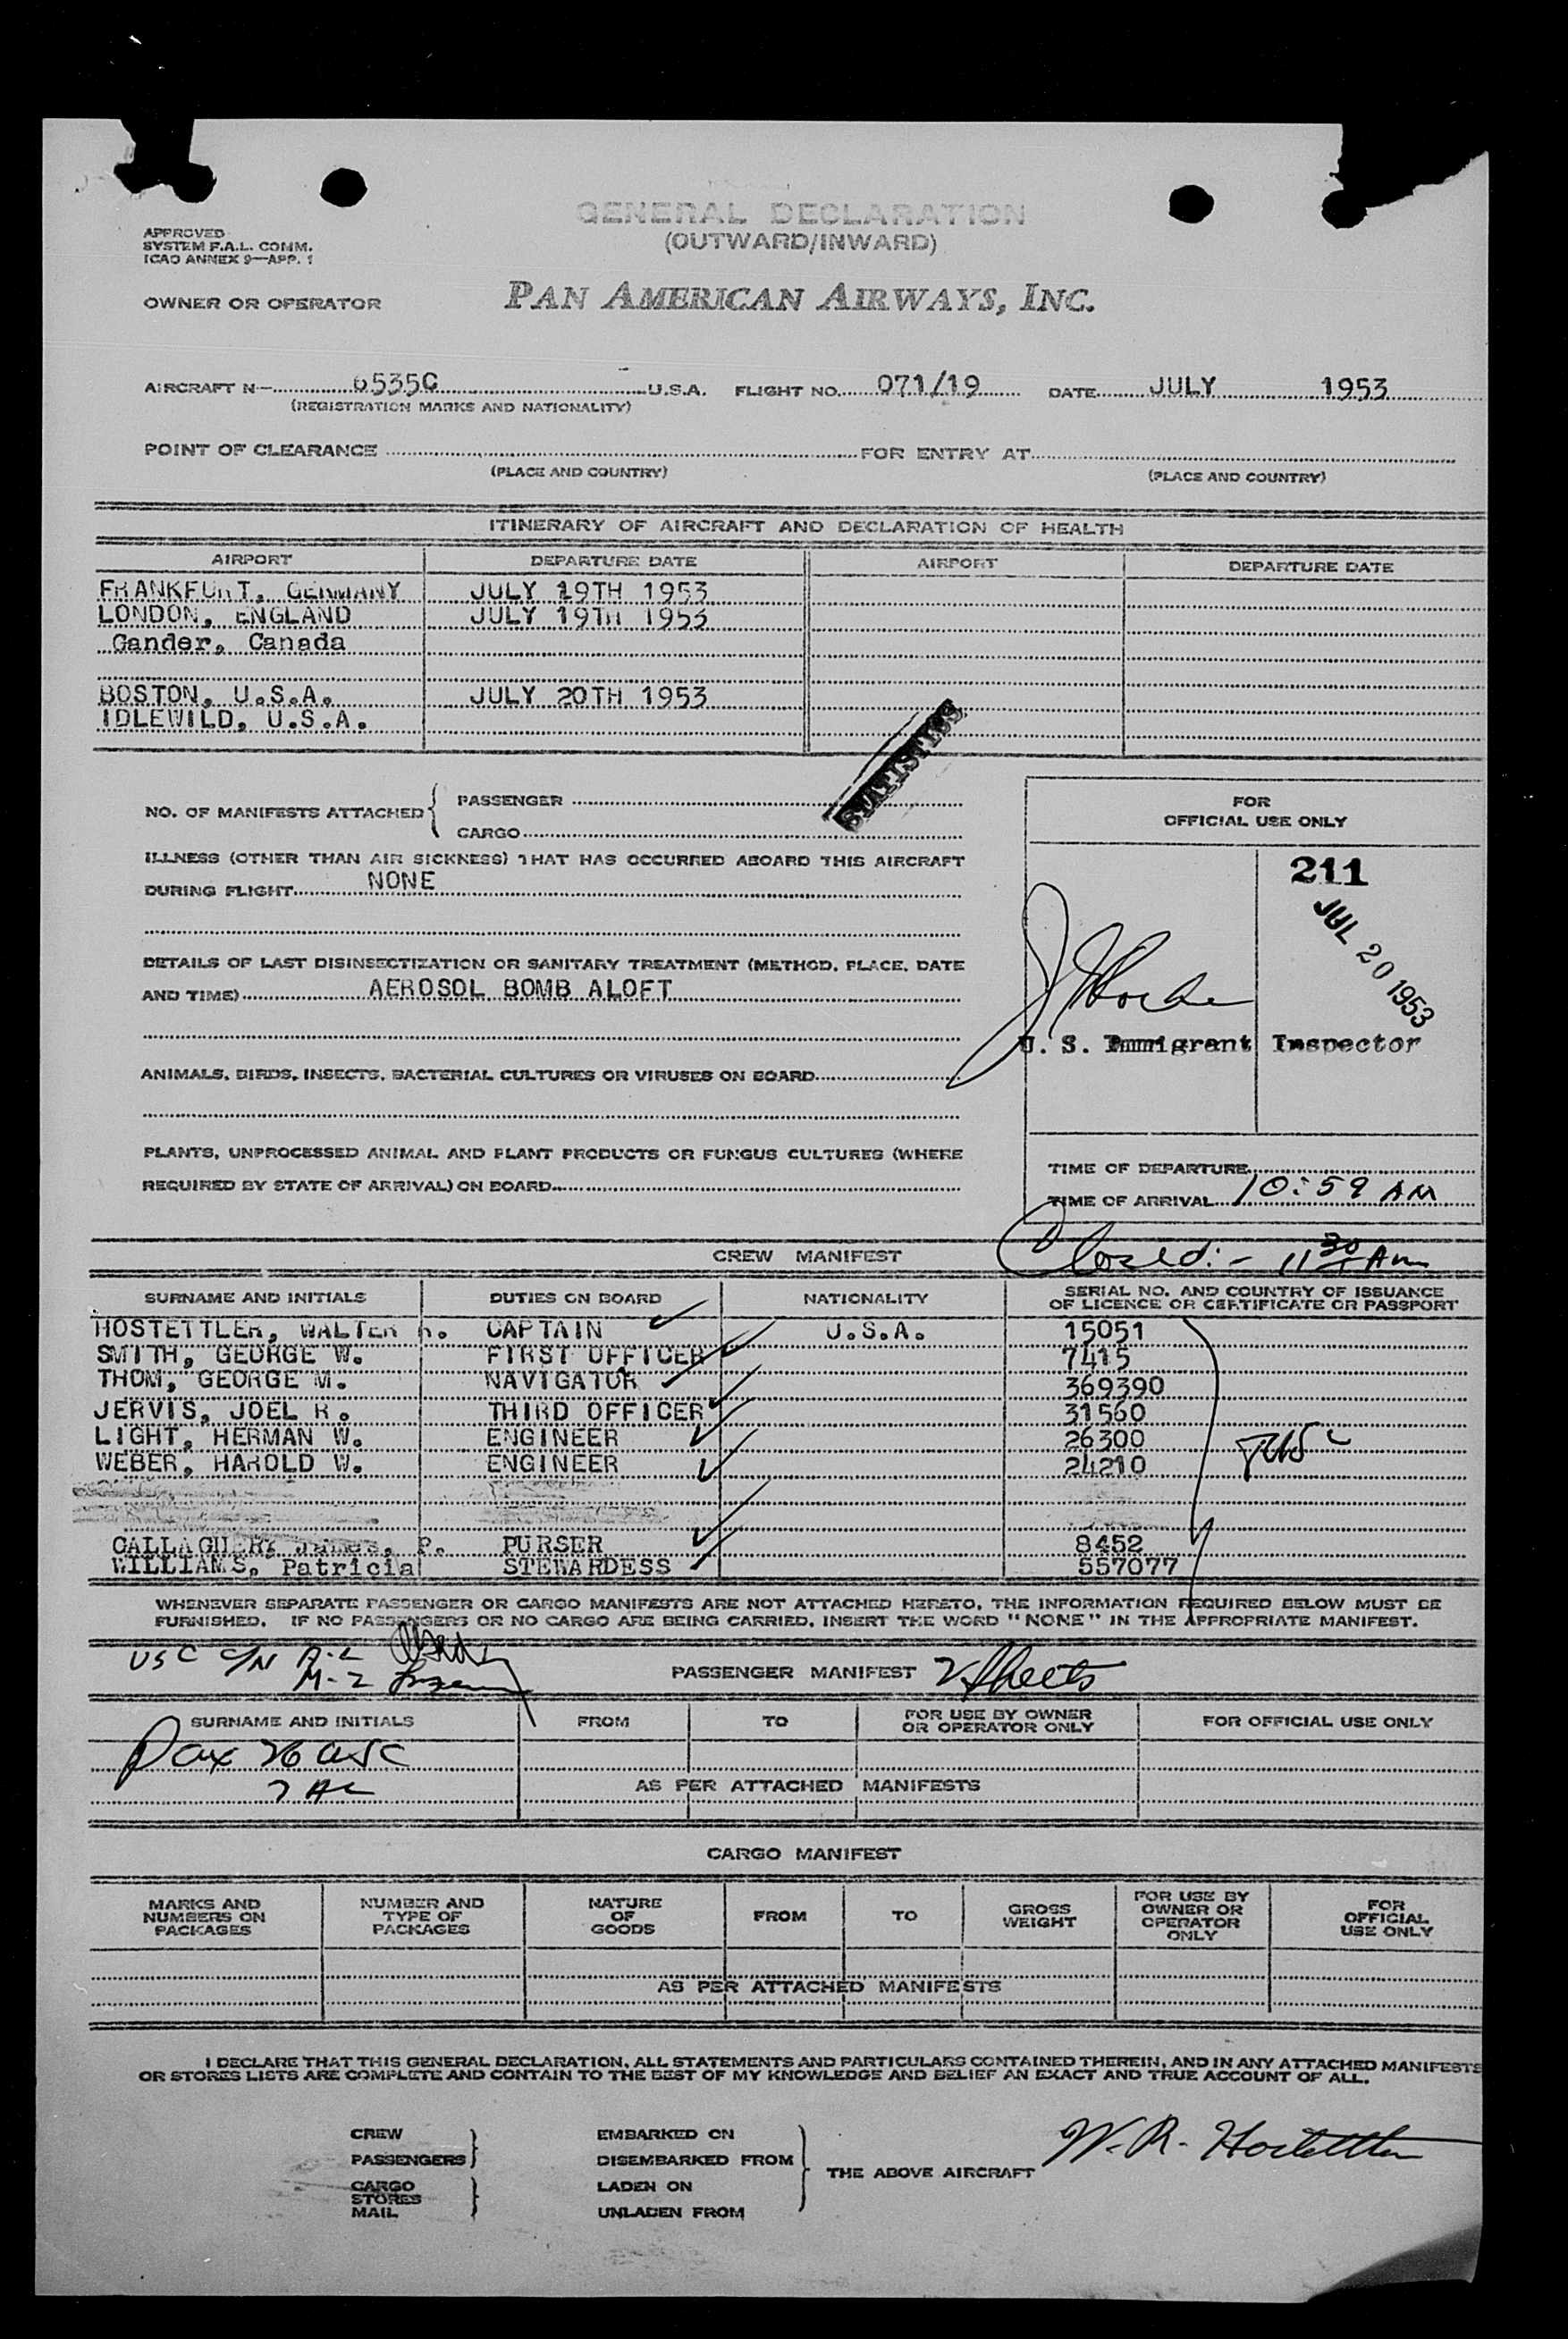 GENERAL DECLARATION
(OUTWARD/INWARD)
APPROVED
SYSTEM F.A.L. COMM.
ICAO ANNEX 9—APP. 1
OWNER OR OPERATOR PAN AMERICAN AIRWAYS, INC.
AIRCRAFT N— 6535C U.S.A. FLIGHT NO. 071/19 DATE JULY 1953
(REGISTRATION MARKS AND NATIONALITY)
POINT OF CLEARANCE FOR ENTRY AT
(PLACE AND COUNTRY) (PLACE AND COUNTRY)
ITINERARY OF AIRCRAFT AND DECLARATION OF HEALTH
AIRPORT DEPARTURE DATE AIRPORT DEPARTURE DATE
FRANKFURT, GERMANY JULY 19TH 1953
LONDON, ENGLAND JULY 19TH 1953
Gander, Canada
BOSTON, U.S.A. JULY 20TH 1953
IDLEWILD, U.S.A.
STATISTICS
NO. OF MANIFESTS ATTACHED { PASSENGER
CARGO
FOR
OFFICIAL USE ONLY
ILLNESS (OTHER THAN AIR SICKNESS) THAT HAS OCCURRED ABOARD THIS AIRCRAFT
DURING FLIGHT NONE
211
JUL 20 1953
DETAILS OF LAST DISINSECTIZATION OR SANITARY TREATMENT (METHOD, PLACE, DATE
AND TIME) AEROSOL BOMB ALOFT
U. S. Immigrant Inspector
ANIMALS, BIRDS, INSECTS, BACTERIAL CULTURES OR VIRUSES ON BOARD
PLANTS, UNPROCESSED ANIMAL AND PLANT PRODUCTS OR FUNGUS CULTURES (WHERE
REQUIRED BY STATE OF ARRIVAL) ON BOARD
TIME OF DEPARTURE
TIME OF ARRIVAL 10:59 AM
Closed:- 11 30 Am
CREW MANIFEST
SURNAME AND INITIALS DUTIES ON BOARD NATIONALITY SERIAL NO. AND COUNTRY OF ISSUANCE
OF LICENCE OR CERTIFICATE OR PASSPORT
HOSTETTLER, WALTER R. CAPTAIN U.S.A. 15051
SMITH, GEORGE W. FIRST OFFICER 7415
THOM, GEORGE M. NAVIGATOR 369390
JERVIS, JOEL R. THIRD OFFICER 31560
LIGHT, HERMAN W. ENGINEER 26300
WEBER, HAROLD W. ENGINEER 24210
GALLAGHER, James, P. PURSER 8452
WILLIAMS, Patricia STEWARDESS 557077
WHENEVER SEPARATE PASSENGER OR CARGO MANIFESTS ARE NOT ATTACHED HERETO, THE INFORMATION REQUIRED BELOW MUST BE
FURNISHED. IF NO PASSENGERS OR NO CARGO ARE BEING CARRIED, INSERT THE WORD "NONE" IN THE APPROPRIATE MANIFEST.
USC C/N A-2
M-2
PASSENGER MANIFEST 2 sheets
SURNAME AND INITIALS FROM TO FOR USE BY OWNER
OR OPERATOR ONLY FOR OFFICIAL USE ONLY
Pax 26 USC
7 AL
AS PER ATTACHED MANIFESTS
CARGO MANIFEST
MARKS AND
NUMBERS ON
PACKAGES
NUMBER AND
TYPE OF
PACKAGES
NATURE
OF
GOODS
FROM
TO
GROSS
WEIGHT
FOR USE BY
OWNER OR
OPERATOR
ONLY
FOR
OFFICIAL
USE ONLY
AS PER ATTACHED MANIFESTS
I DECLARE THAT THIS GENERAL DECLARATION, ALL STATEMENTS AND PARTICULARS CONTAINED THEREIN, AND IN ANY ATTACHED MANIFESTS
OR STORES LISTS ARE COMPLETE AND CONTAIN TO THE BEST OF MY KNOWLEDGE AND BELIEF AN EXACT AND TRUE ACCOUNT OF ALL.
CREW EMBARKED ON
PASSENGERS DISEMBARKED FROM
THE ABOVE AIRCRAFT W. R. Hostettler
CARGO LADEN ON
STORES
MAIL UNLADEN FROM